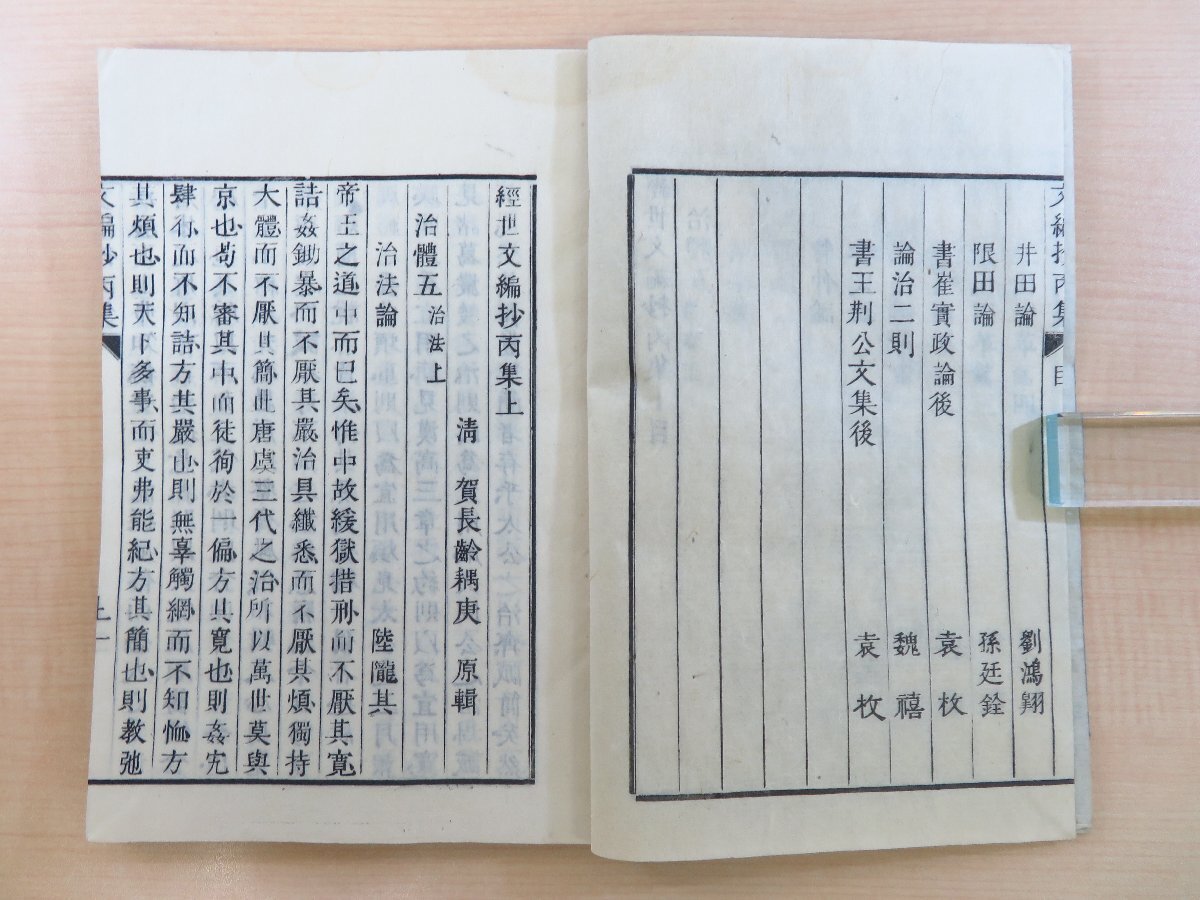 井田論 劉鴻翺
限田論 孫廷銓
書崔實政論後 袁枚
論治二則 魏禧
書王荆公文集後 袁枚
經世文編抄丙集上
清 賀長齡耦庚 原輯
治體五治法上
治法論 陸隴其
帝王之道中而已矣惟中故緩獄措刑而不厭其寬
詰姦鋤暴而不厭其嚴治具纖悉而不厭其煩獨持
大體而不厭其簡此唐虞三代之治所以萬世莫與
京也苟不審其中而徒徇於一偏方其寬也則姦宄
肆行而不知詰方其嚴也則無辜觸網而不知恤方
其煩也則天下多事而吏弗能紀方其簡也則教弛
文編抄丙集 上一